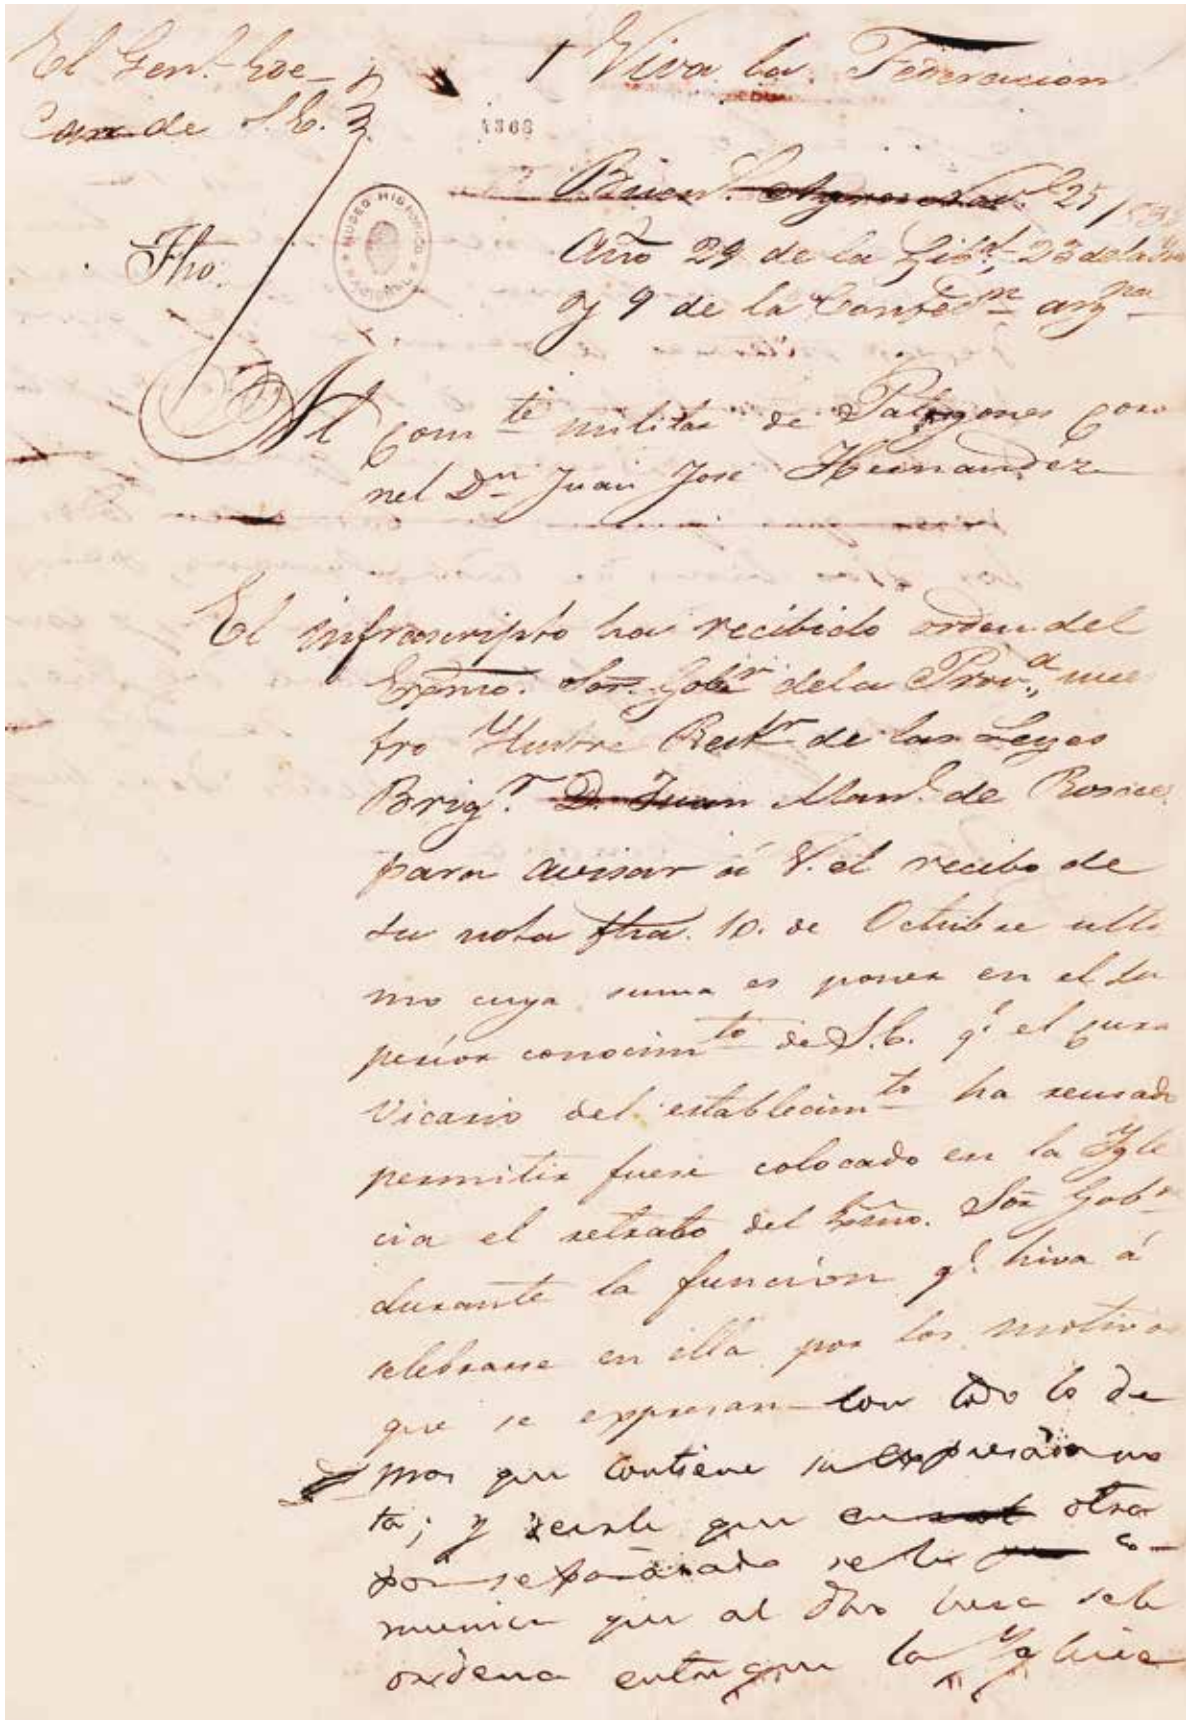 El Gen.l Ede-
can de S.E.
¡Viva la Federacion
1368
MUSEO HISTORICO NACIONAL
Buen.s Ayres Nov.e 25/1838
Fho.
Año 29 de la Lib.d 23 de la
y 9 de la Confed.n arg.na
Al Com.te militar de Patagones Coro
nel D.n Juan José Hernandez
El infrascripto ha recibido orden del
Exmo. Sor. Gob.r de la Prov.a, nues
tro Ilustre Rest.r de las Leyes
Brig.r D. Juan Man.l de Rosas
para avisar á V. el recibo de
su nota fha. 10. de Octubre ulti
mo cuya suma es poner en el su
perior conocim.to de S.E. q.e el cura
Vicario del establecim.to ha reusado
permitir fuese colocado en la Ygle
cia el retrato del Exmo. Sor Gob.r
durante la función q.e hiva á
selebrarse en ella por los motivos
que se expresan con todo lo de
mas que contiene su expresada no
ta; y decirle que en otra
por separado se le co-
munica que al dho cura se le
ordena entregue la Yglecia